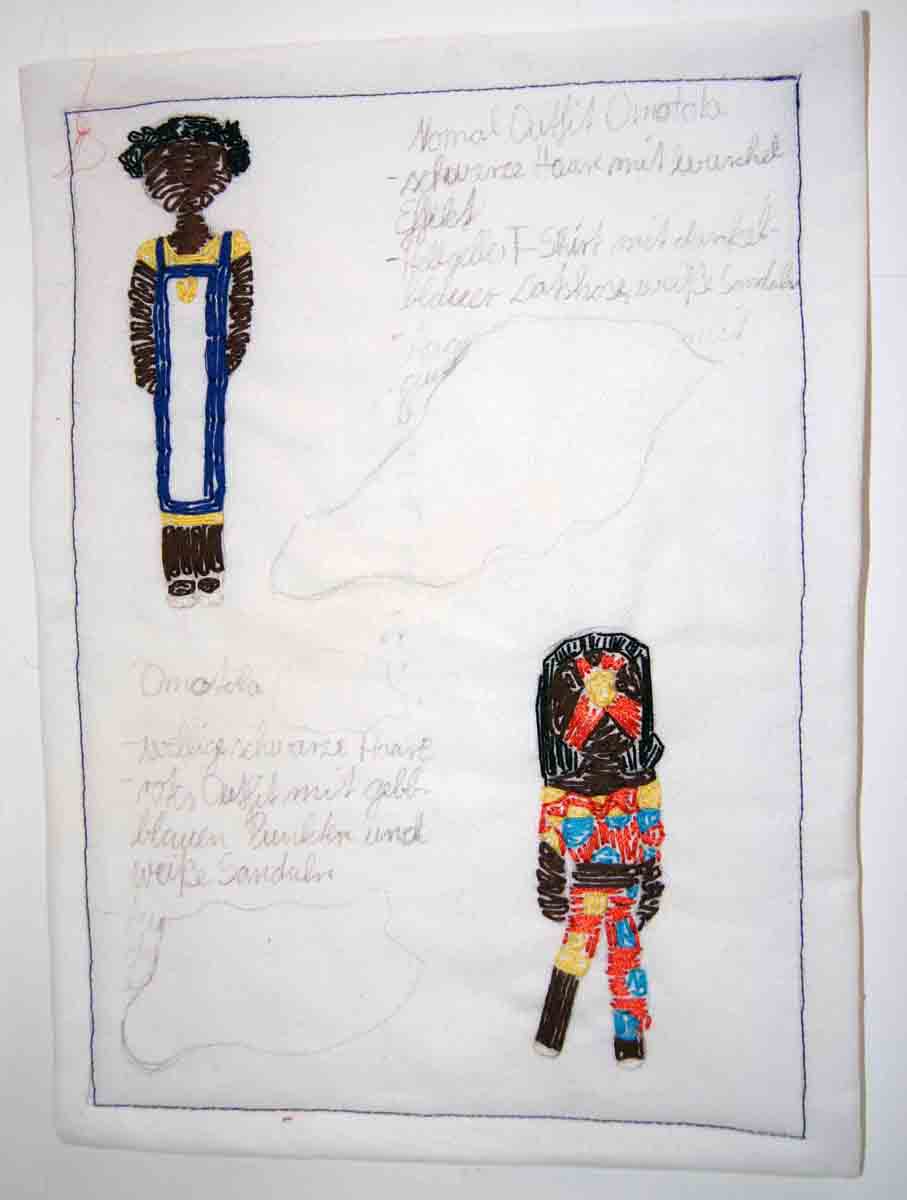 Nomal Outfit Omotola
- schwarze Haare mit wuschel
Effekt
- Hellgelbes T-Shirt mit dunkel-
blauer Latzhose, weiße Sandaln
mit
Omotola
- schwarze Haare
- rotes Outfit mit gelb-
blauen Punktn und
weiße Sandaln